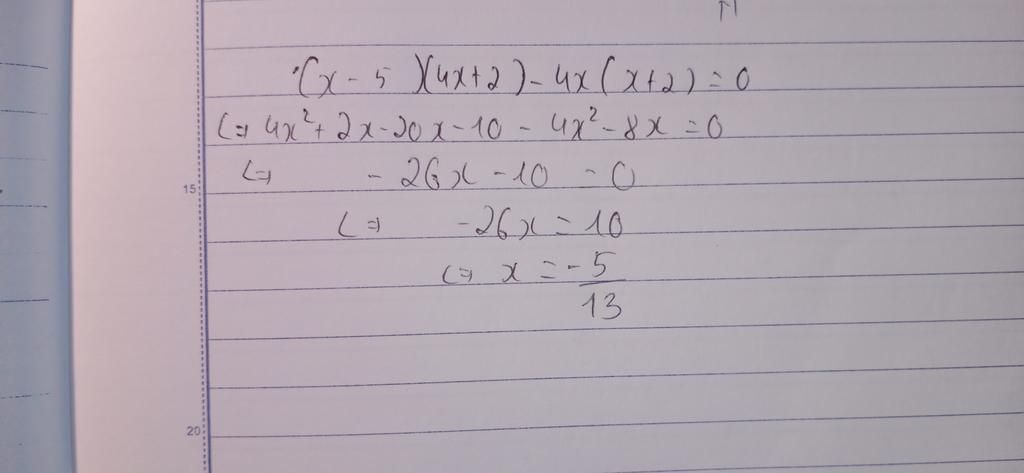 (x - 5)(4x+2) - 4x(x+2) = 0
<=> 4x² + 2x - 20x - 10 - 4x² - 8x = 0
15 <=> - 26x - 10 = 0
<=> - 26x = 10
<=> x = - 5/13
20